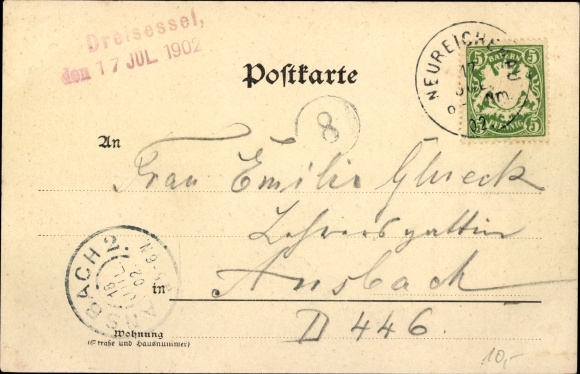 Dreisessel,
den 17 JUL. 1902
Postkarte
NEUREICHENAU
17
JUL
02
BAYERN
5 5
5 PFENNIG 5
8
An
Frau Emilie Glueck
Lehrersgattin
in Ansbach
D 446.
ANSBACH 2.
18
JUL
02
Wohnung
(Straße und Hausnummer)
10,-